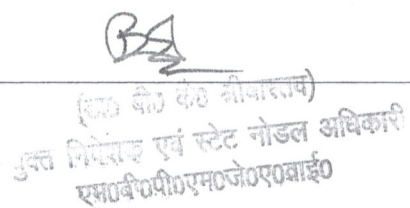 (डा० बी० के० श्रीवास्तव)
निदेशक एवं स्टेट नोडल अधिकारी
एम०बी०पी०एम०जे०ए०वाई०